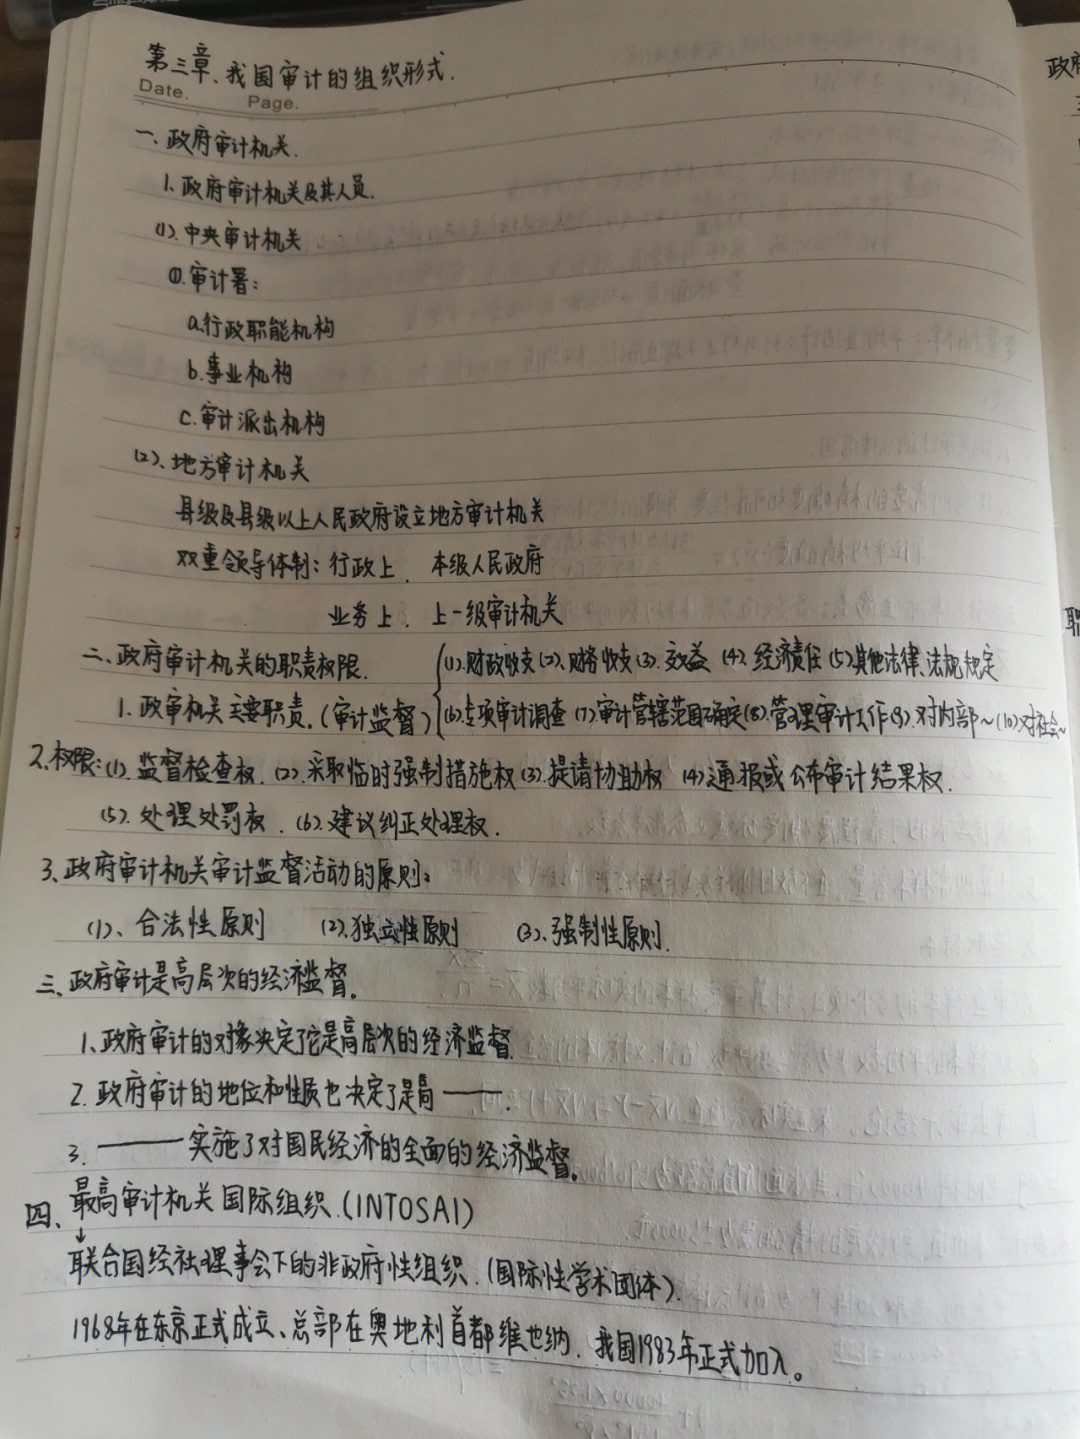 第三章、我国审计的组织形式.
Date. Page.
一、政府审计机关.
1、政府审计机关及其人员.
(1).中央审计机关
①.审计署:
a.行政职能机构
b.事业机构
c.审计派出机构
(2)、地方审计机关
县级及县级以上人民政府设立地方审计机关
双重领导体制: 行政上. 本级人民政府
业务上. 上一级审计机关
二、政府审计机关的职责权限.
(1).财政收支(2).财务收支(3).效益 (4).经济责任(5)其他法律、法规规定
1.政审机关主要职责.(审计监督)
(6)专项审计调查(7)审计管辖范围确定(8).管理审计工作(9).对内部~(10)对社会~
2.权限:(1).监督检查权.(2).采取临时强制措施权(3).提请协助权 (4)通报或公布审计结果权.
(5).处理处罚权.(6).建议纠正处理权.
3、政府审计机关审计监督活动的原则:
(1)、合法性原则 (2).独立性原则 (3).强制性原则.
三、政府审计是高层次的经济监督。
1、政府审计的对象决定了它是高层次的经济监督.
2.政府审计的地位和性质也决定了是高——.
3. ——实施了对国民经济的全面的经济监督。
四、最高审计机关国际组织.(INTOSAI)
↓
联合国经社理事会下的非政府性组织.(国际性学术团体).
1968年在东京正式成立、总部在奥地利首都维也纳. 我国1983年正式加入。
政府
职